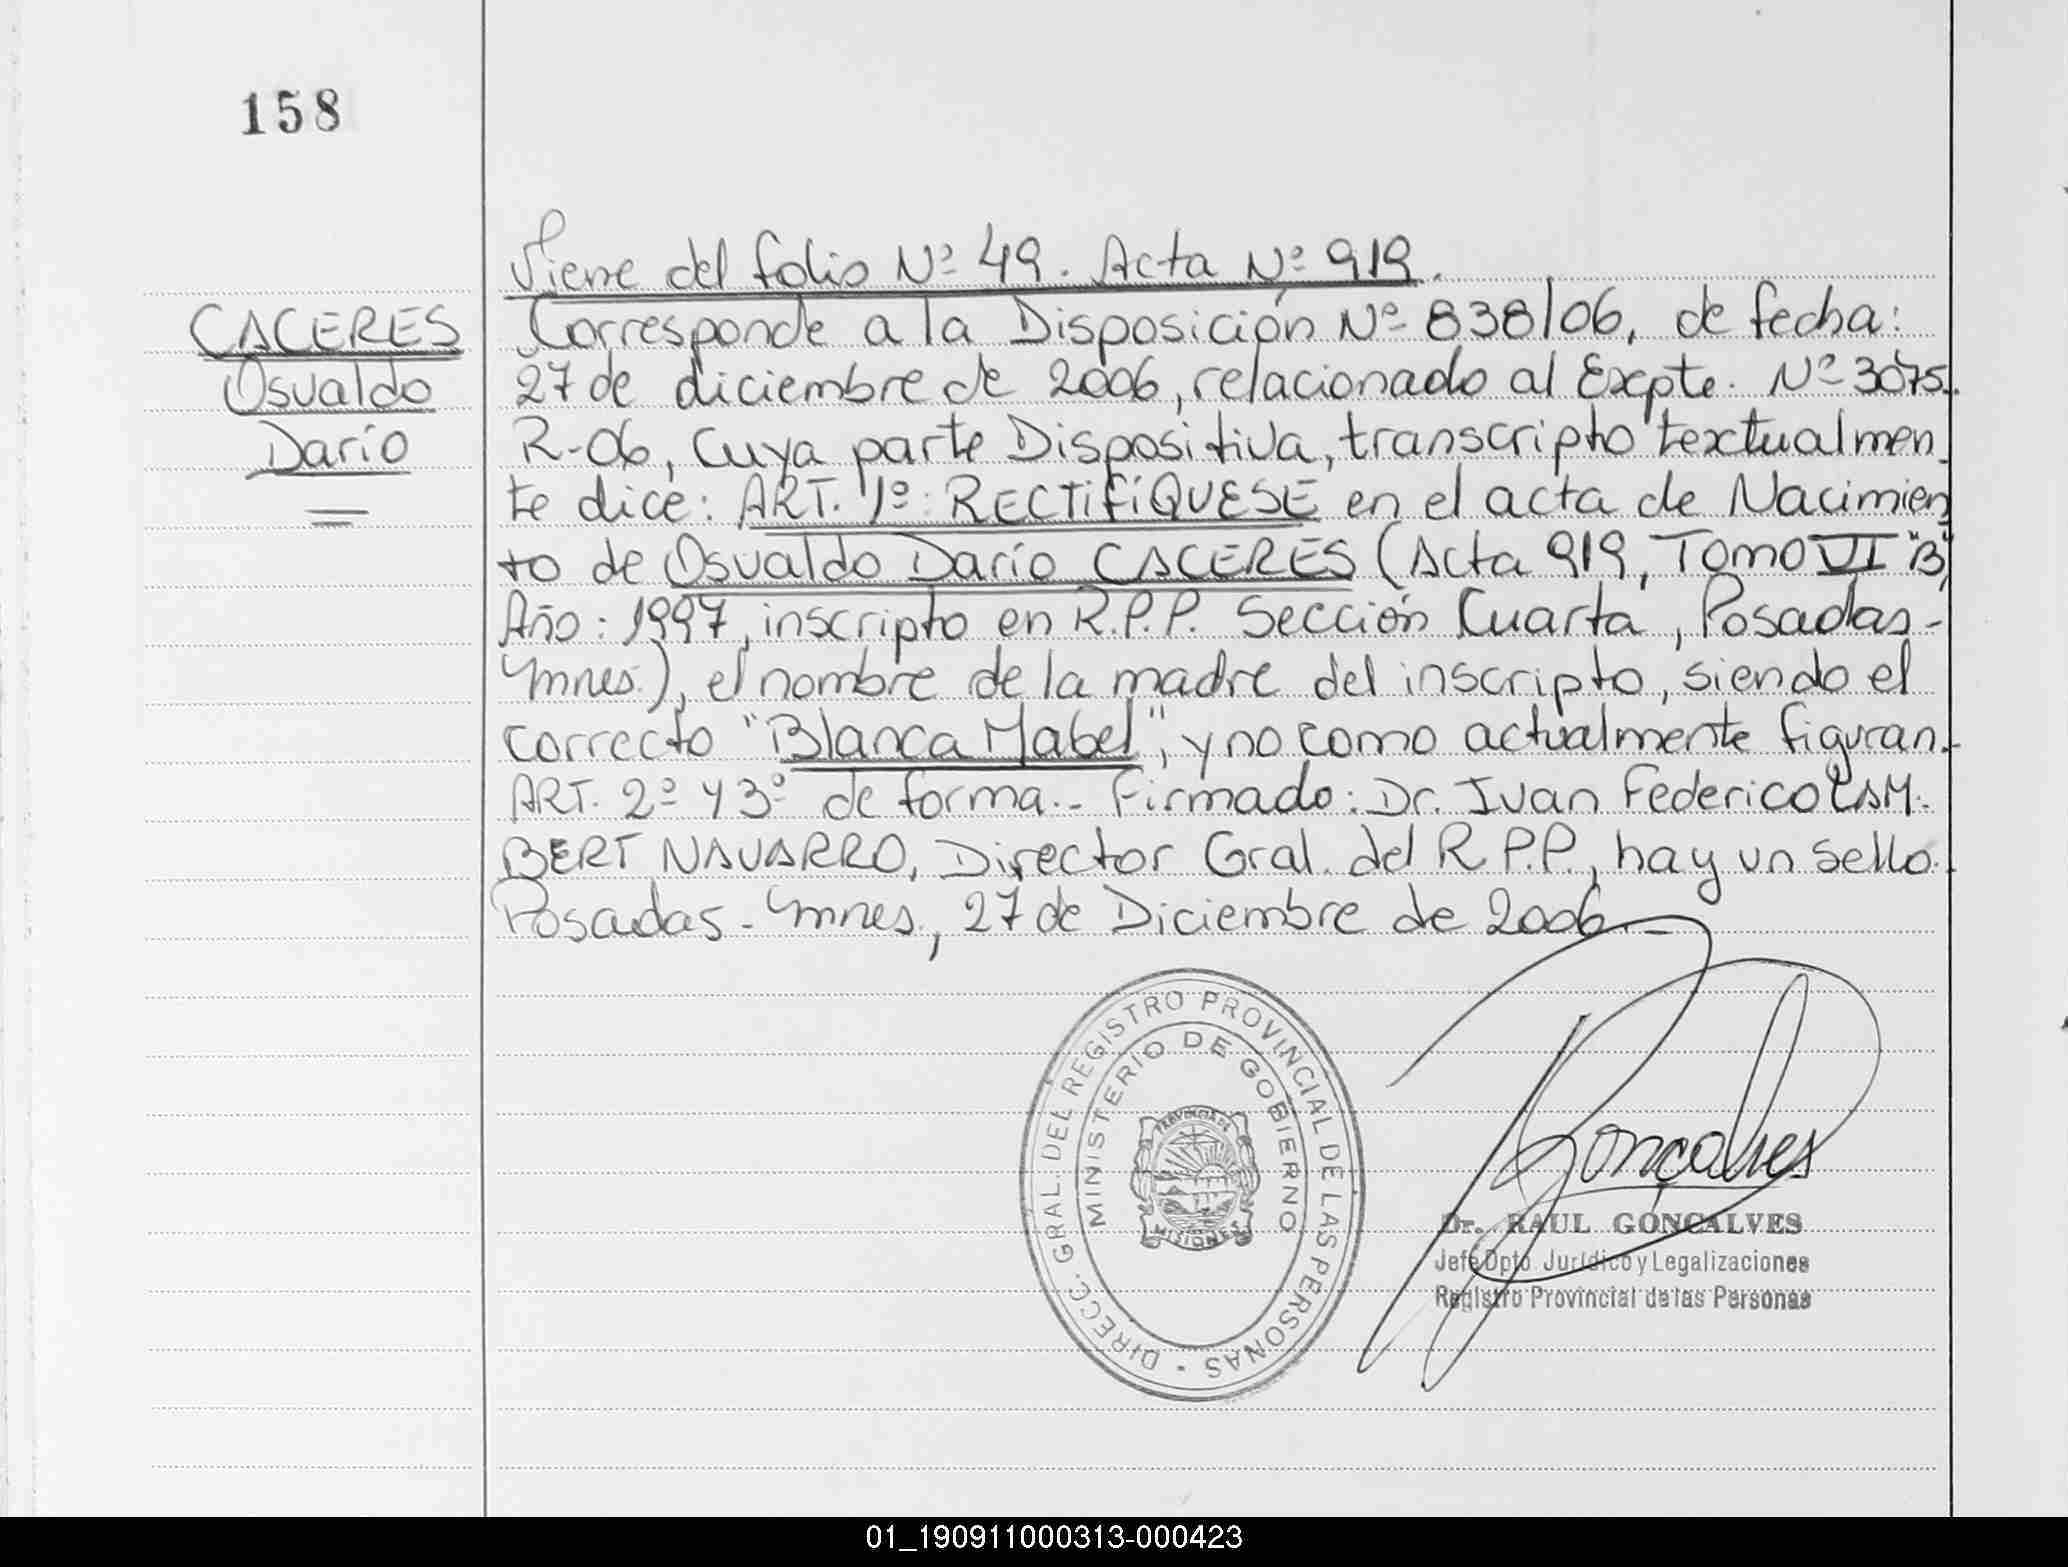 158
Viene del folio Nº 49. Acta Nº 919.
CACERES
Osvaldo
Darío
Corresponde a la Disposición Nº 838/06, de fecha:
27 de diciembre de 2006, relacionado al Expte. Nº 3075.
R-06, cuya parte Dispositiva, transcripto textualmen
te dice: ART. 1º: RECTIFÍQUESE en el acta de Nacimien
to de Osvaldo Darío CACERES (Acta 919, Tomo VI "B",
Año: 1997, inscripto en R.P.P. Sección Cuarta, Posadas-
Mnes.), el nombre de la madre del inscripto, siendo el
correcto "Blanca Mabel", y no como actualmente figuran.
ART. 2º y 3º de forma.- Firmado: Dr. Ivan Federico LAM.
BERT NAVARRO, Director Gral. del R.P.P., hay un sello.
Posadas-Mnes, 27 de Diciembre de 2006
DIRECC. GRAL. DEL REGISTRO PROVINCIAL DE LAS PERSONAS -
MINISTERIO DE GOBIERNO
PROVINCIA DE
MISIONES
Gonçalves
Dr. RAUL GONÇALVES
Jefe Dpto. Jurídico y Legalizaciones
Registro Provincial de las Personas
01_190911000313-000423